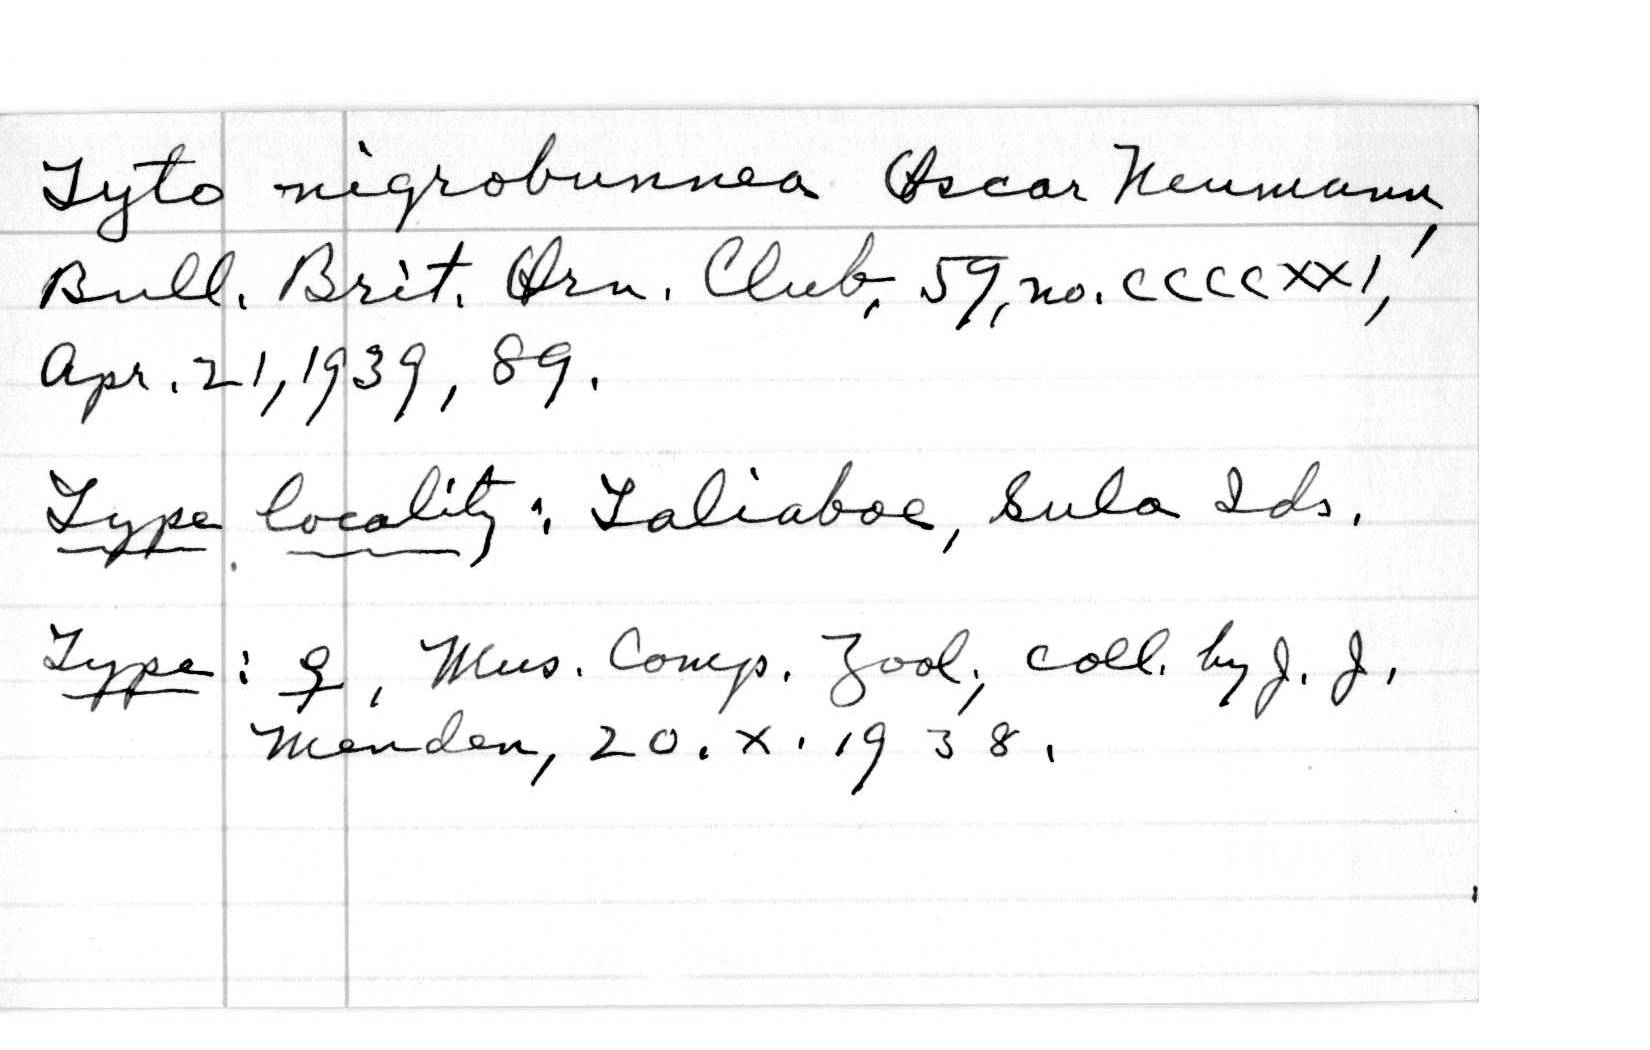 Tyto nigrobunnea Oscar Neumann,
Bull. Brit. Orn. Club, 59, no. CCCCXXI,
Apr. 21, 1939, 89.
Type locality: Taliaboe, Sula Ids.
Type: ♀, Mus. Comp. Zool., coll. by J. J.
Menden, 20. X. 1938.